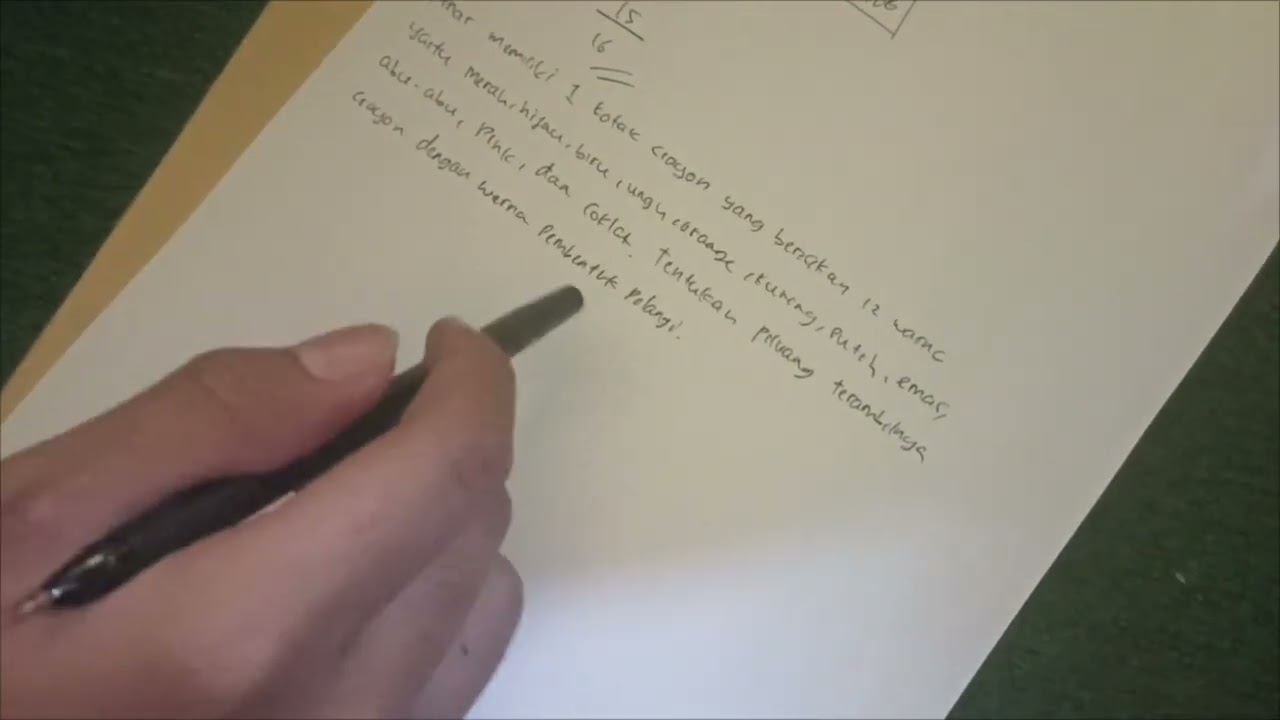 15
16
memiliki 1 kotak crayon yang berisikan 12 warna
yaitu merah, hijau, biru, ungu, orange, kuning, putih, emas,
abu-abu, Pink, dan Coklat. Tentukan peluang terambilnya
crayon dengan warna Pembentuk pelangi.